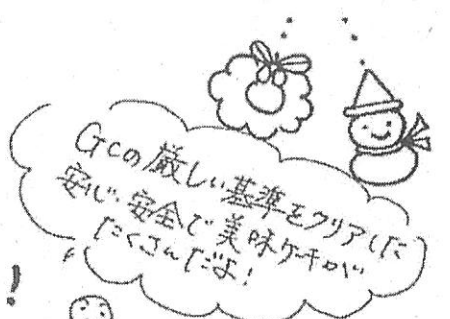 GCの厳しい基準をクリアした
安心・安全で美味ケーキが
たくさんだよ!
!